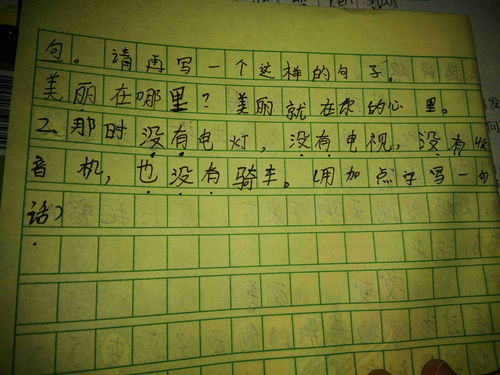 句。请再写一个这样的句子。
美丽在哪里？美丽就在你的心里。
2、那时没有电灯，没有电视，没有收
音机，也没有骑车。（用加点字写一句
话）